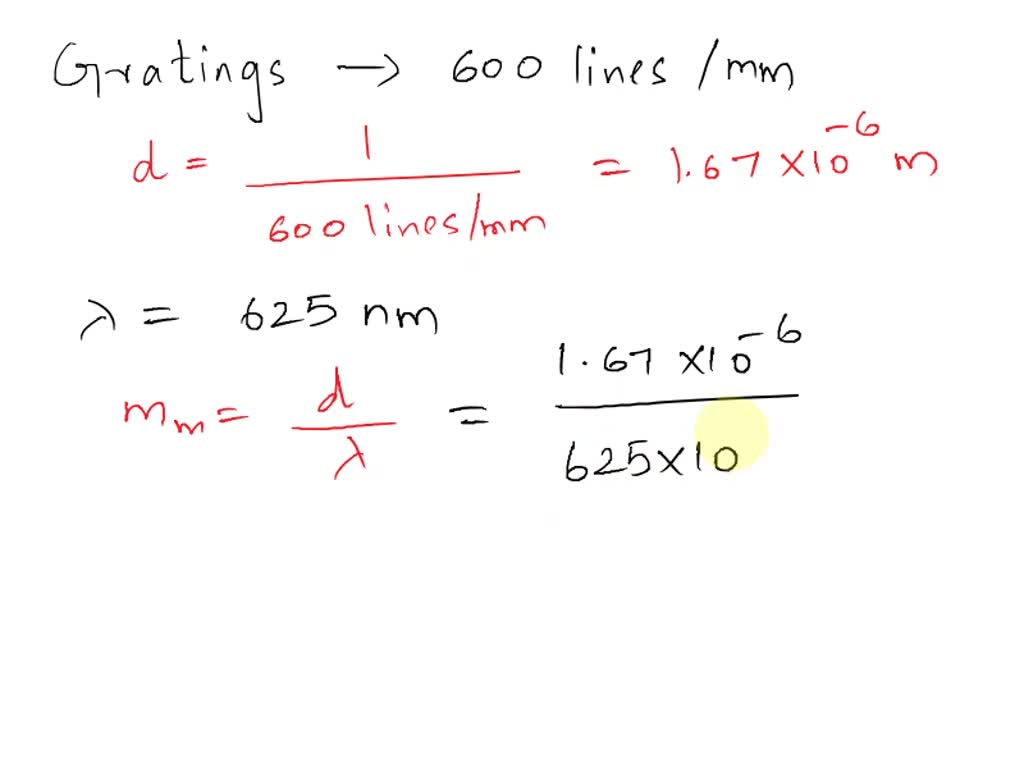 Gratings → 600 lines /mm
d = 1 / 600 lines/mm = 1.67 ×10⁻⁶ m
λ = 625 nm
mₘ = d / λ = 1.67 ×10⁻⁶ / 625×10